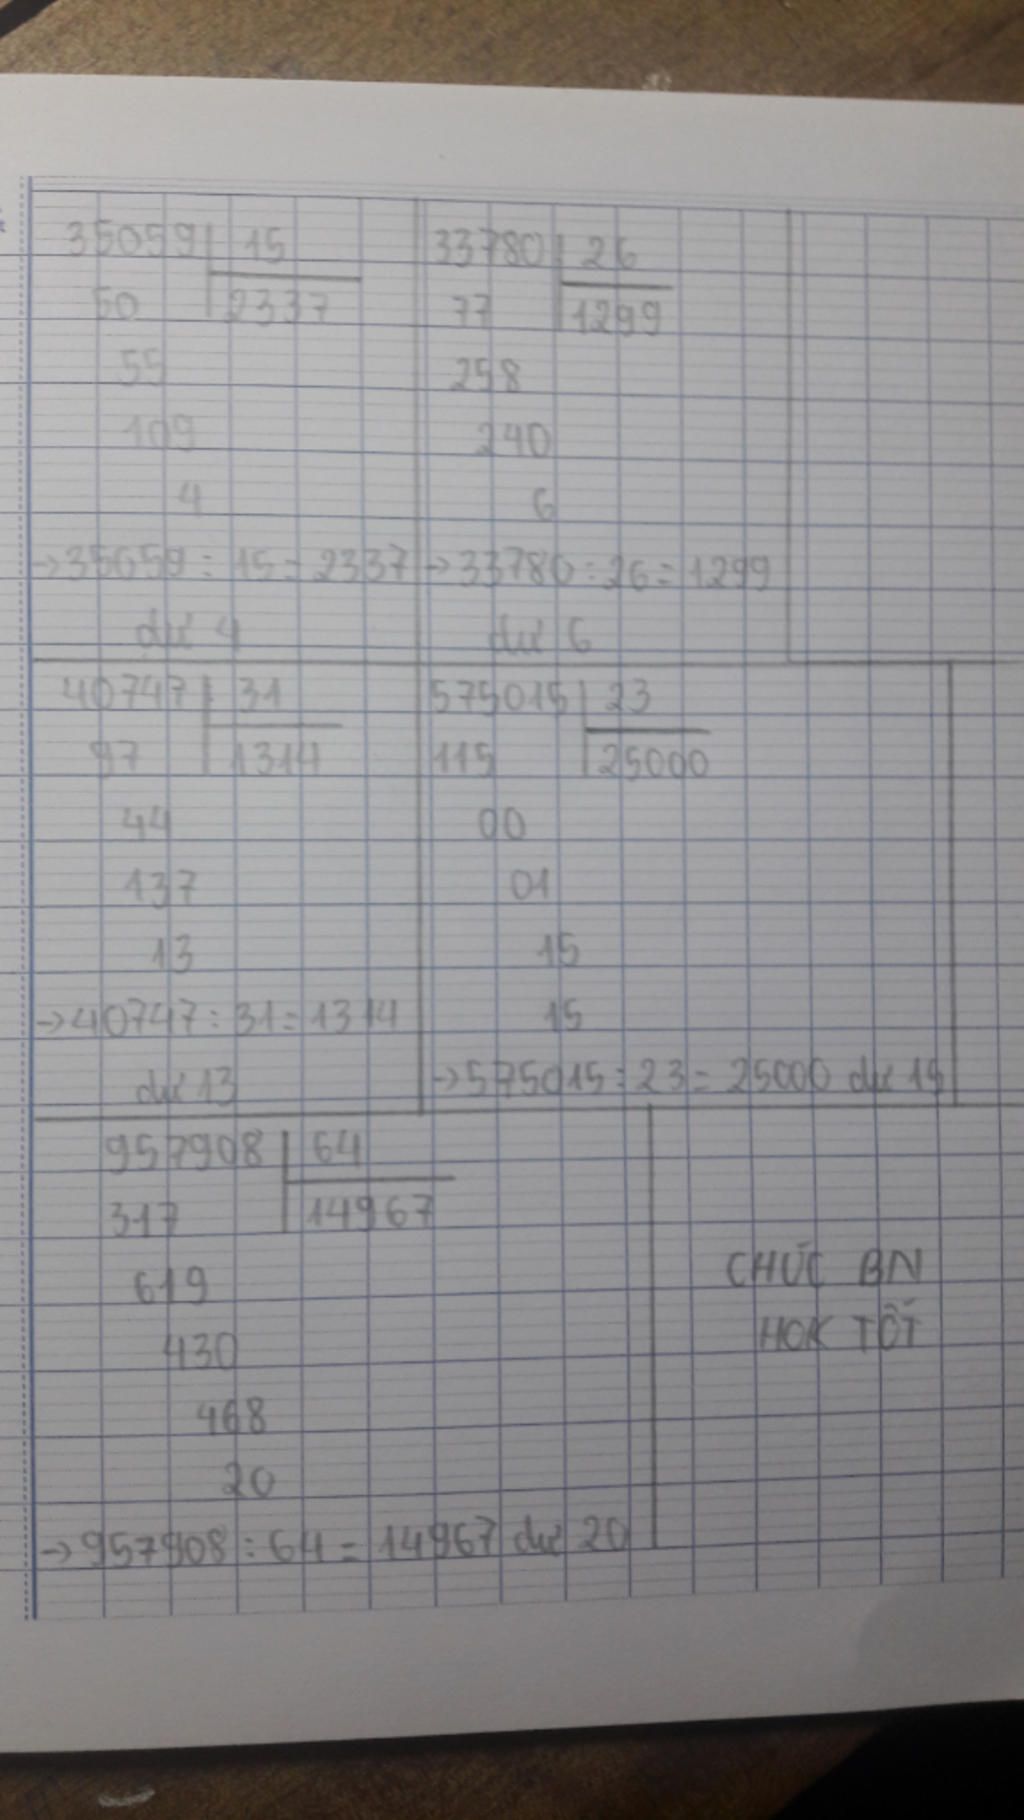 35059 15
50 2337
55
109
4
→35059 : 15 = 2337
dư 4
33780 26
77 1299
258
240
6
→33780 : 26 = 1299
dư 6
40747 31
97 1314
44
137
13
→40747 : 31 = 1314
dư 13
575015 23
115 25000
00
01
15
15
→575015 : 23 = 25000 dư 15
957908 64
317 14967
619
430
468
20
→957908 : 64 = 14967 dư 20
CHÚC BN
HOK TỐT